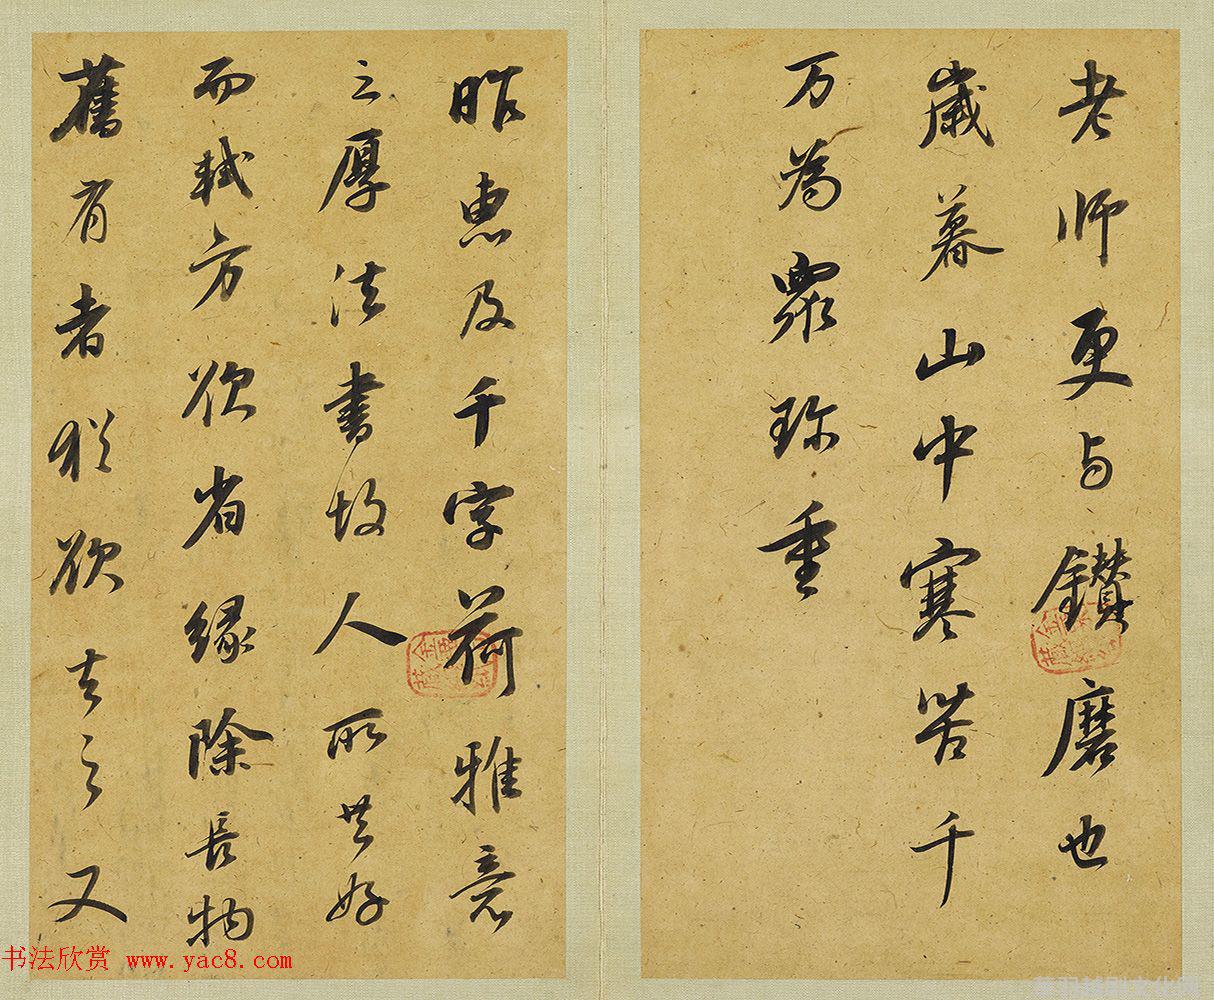 老师更与鑽磨也
歳暮山中寒苦千
万为衆珍重
昨惠及千字荷雅意
之厚法書故人所共好
而軾方欲省縁除長物
舊有者猶欲去之又
书法欣赏 www.yac8.com